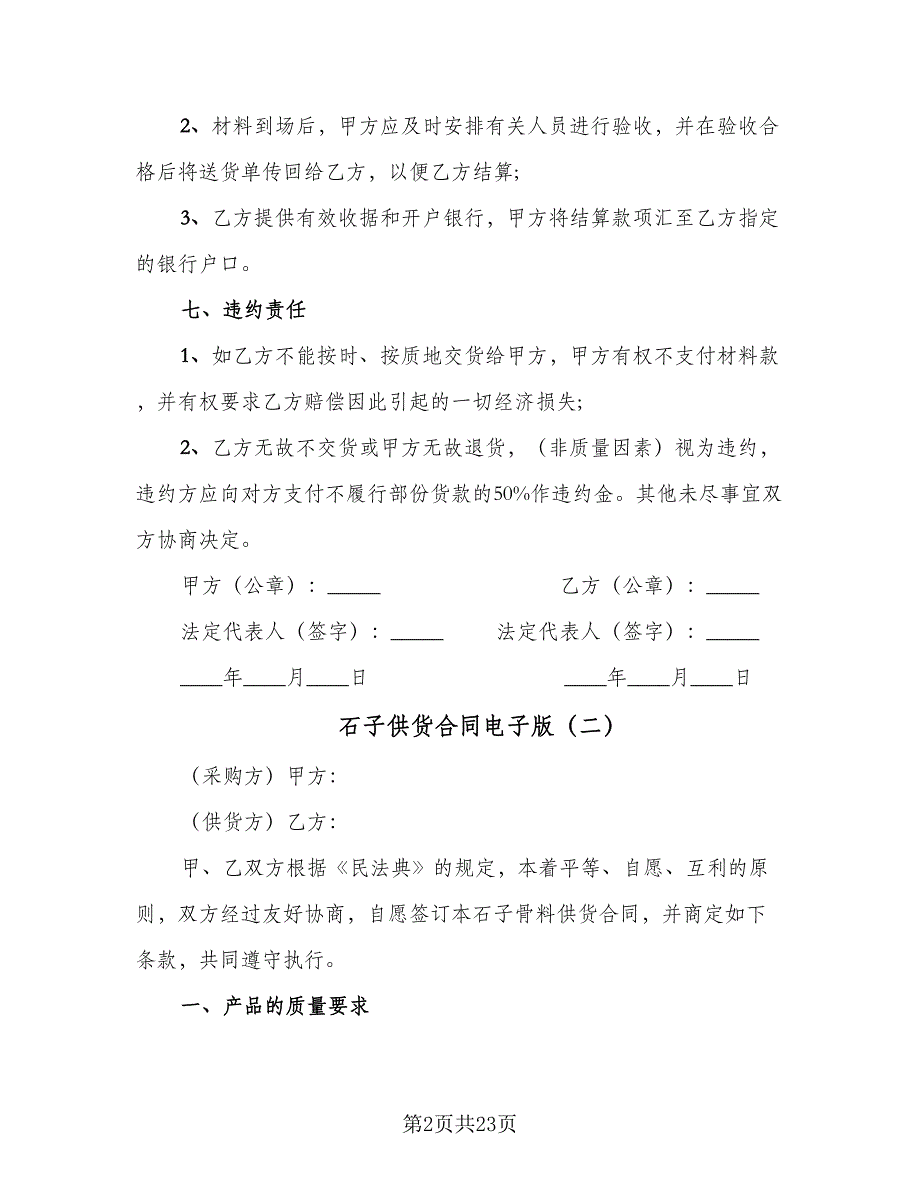 2、材料到场后，甲方应及时安排有关人员进行验收，并在验收合
格后将送货单传回给乙方，以便乙方结算;
3、乙方提供有效收据和开户银行，甲方将结算款项汇至乙方指定
的银行户口。
七、违约责任
1、如乙方不能按时、按质地交货给甲方，甲方有权不支付材料款
，并有权要求乙方赔偿因此引起的一切经济损失;
2、乙方无故不交货或甲方无故退货，（非质量因素）视为违约，
违约方应向对方支付不履行部份货款的50%作违约金。其他未尽事宜双
方协商决定。
甲方（公章）：_____ 乙方（公章）：_____
法定代表人（签字）：_____ 法定代表人（签字）：_____
____年____月____日 ____年____月____日
石子供货合同电子版（二）
（采购方）甲方：
（供货方）乙方：
甲、乙双方根据《民法典》的规定，本着平等、自愿、互利的原
则，双方经过友好协商，自愿签订本石子骨料供货合同，并商定如下
条款，共同遵守执行。
一、产品的质量要求
第2页共23页